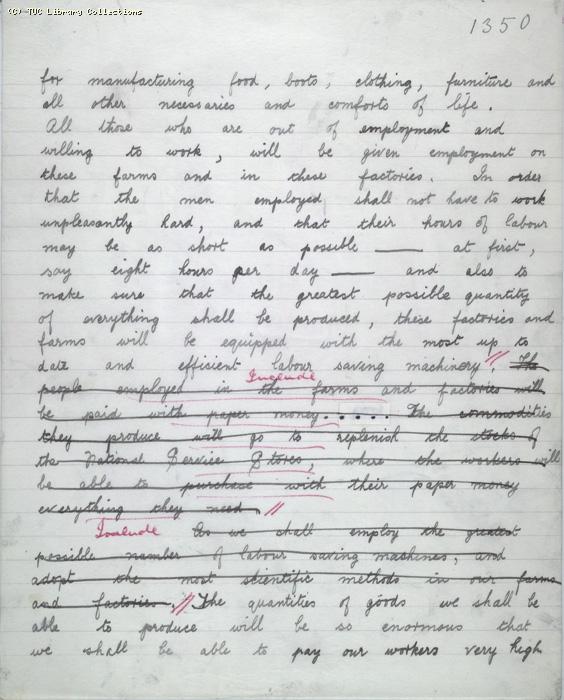 (C) TUC Library Collections
1350
for manufacturing food, boots, clothing, furniture and
all other necessaries and comforts of life.
All those who are out of employment and
willing to work, will be given employment on
these farms and in these factories. In order
that the men employed shall not have to work
unpleasantly hard, and that their hours of labour
may be as short as possible — at first,
say eight hours per day — and also to
make sure that the greatest possible quantity
of everything shall be produced, these factories and
farms will be equipped with the most up to
date and efficient labour saving machinery". The
Include
people employed in the farms and factories will
be paid with paper money..... The commodities
they produce will go to replenish the stocks of
the National Service Stores, where the workers will
be able to purchase with their paper money
everything they need. //
Include As we shall employ the greatest
possible number of labour saving machines, and
adopt the most scientific methods in our farms
and factories, // The quantities of goods we shall be
able to produce will be so enormous that
we shall be able to pay our workers very high